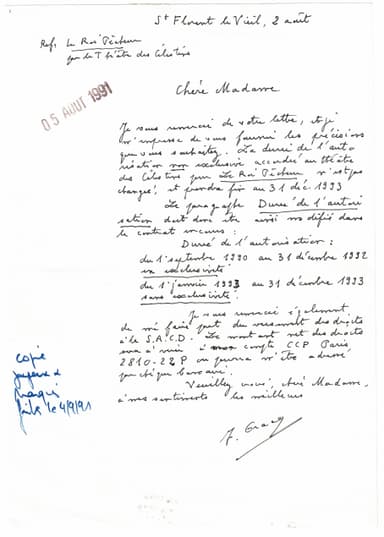 St Florent le Vieil, 2 août
Réf. Le Roi Pêcheur
par le Théâtre des Célestins
05 AOUT 1991
Chère Madame
Je vous remercie de votre lettre, et je
m'empresse de vous fournir les précisions
que vous souhaitez. La durée de l'auto
risation non exclusive accordée au théâtre
des Célestins pour Le Roi Pêcheur n'est pas
changée, et prendra fin au 31 déc. 1993
Le paragraphe Durée de l'autori
sation doit donc être ainsi modifié dans
le contrat en cours :
Durée de l'autorisation :
du 1er septembre 1990 au 31 décembre 1992
en exclusivité
du 1er janvier 1993 au 31 décembre 1993
sans exclusivité.
Je vous remercie également
de me faire part du versement des droits
à la S.A.C.D. Le montant net des droits
sera à virer à mon compte CCP Paris
2810-22 P ou pourra m'être adressé
par chèque bancaire.
Veuillez croire, chère Madame,
à mes sentiments les meilleurs
J. Gracq
copie
faite le 4/9/91